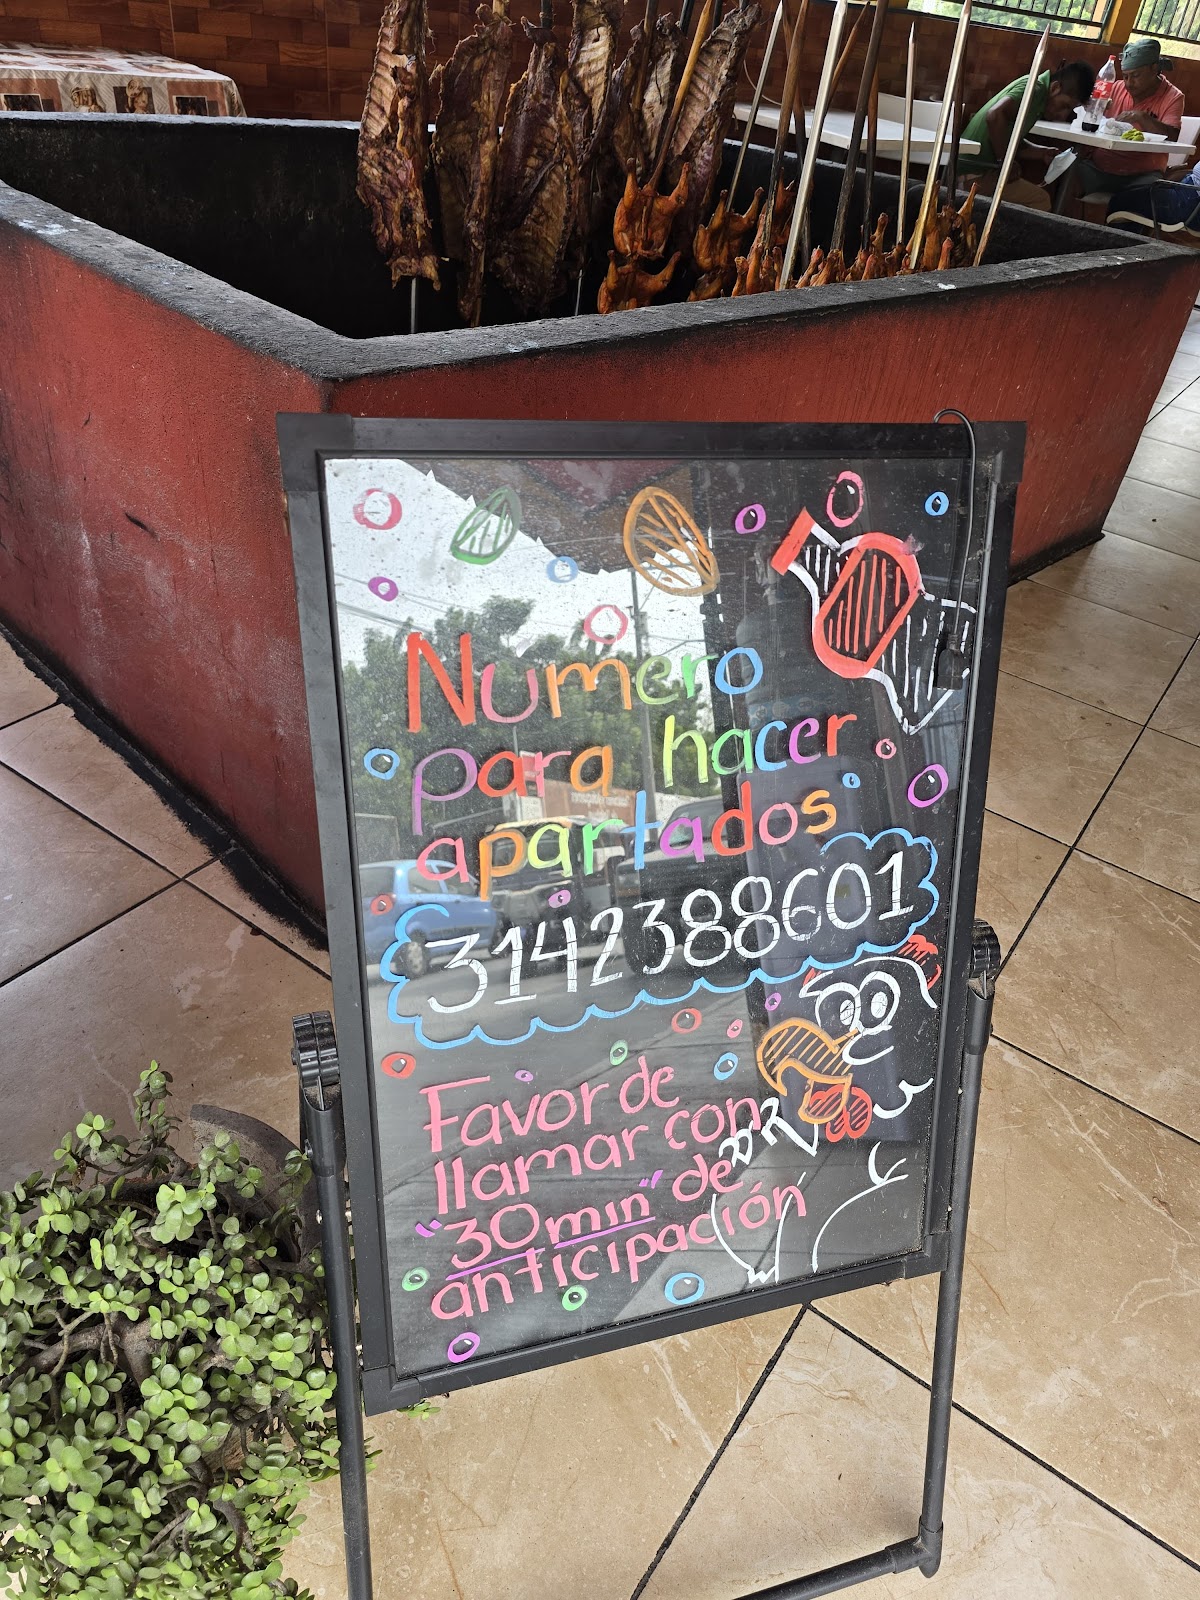 Numero
para hacer
apartados
3142388601
Favor de
llamar con
"30min" de
anticipación